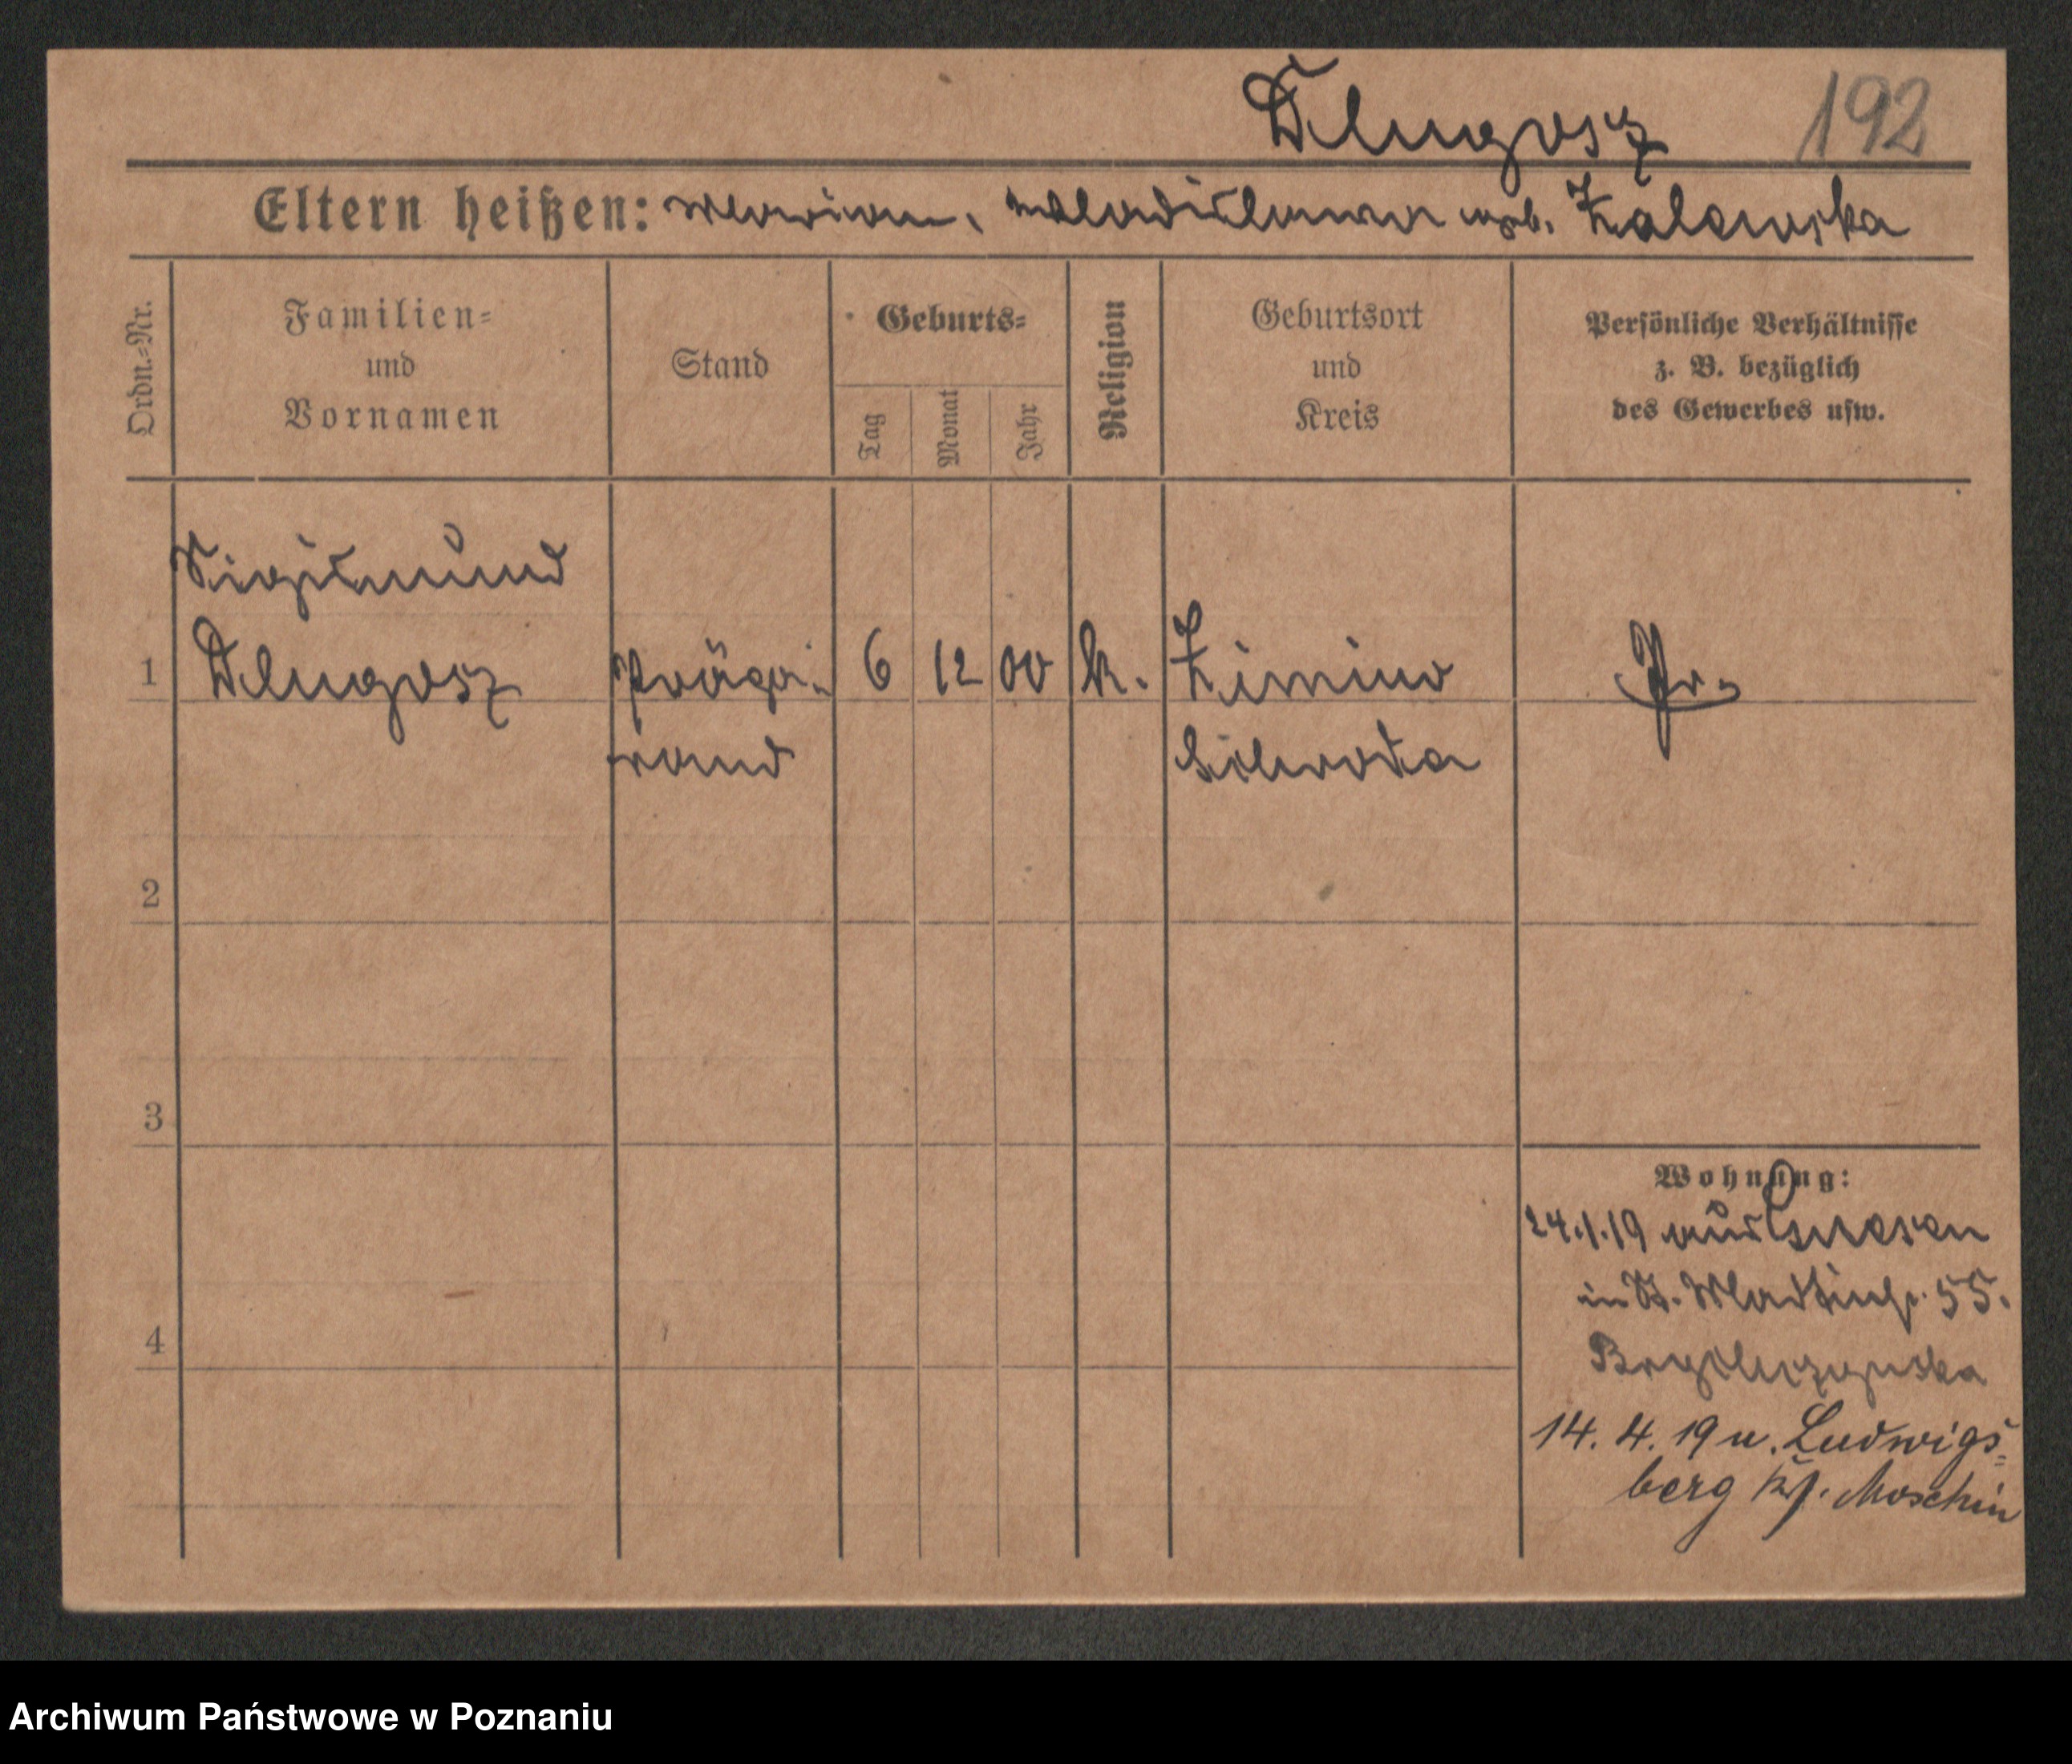 Dlugosz 192
Eltern heißen: Marian, Wladislawa geb. Zalewska
Ordn.-Nr.
Familien-
und
Vornamen
Stand
Geburts-
Tag
Monat
Jahr
Religion
Geburtsort
und
Kreis
Persönliche Verhältnisse
z. B. bezüglich
des Gewerbes usw.
Sigismund
1 Dlugosz Präpa- 6 12 00 k. Zimino Pr.
rand Schroda
2
3
4
Wohnung:
24.1.19 aus Gnesen
in St. Martinstr. 55.
14. 4. 19 n. Ludwigs-
berg Kr. Moschin
Archiwum Państwowe w Poznaniu